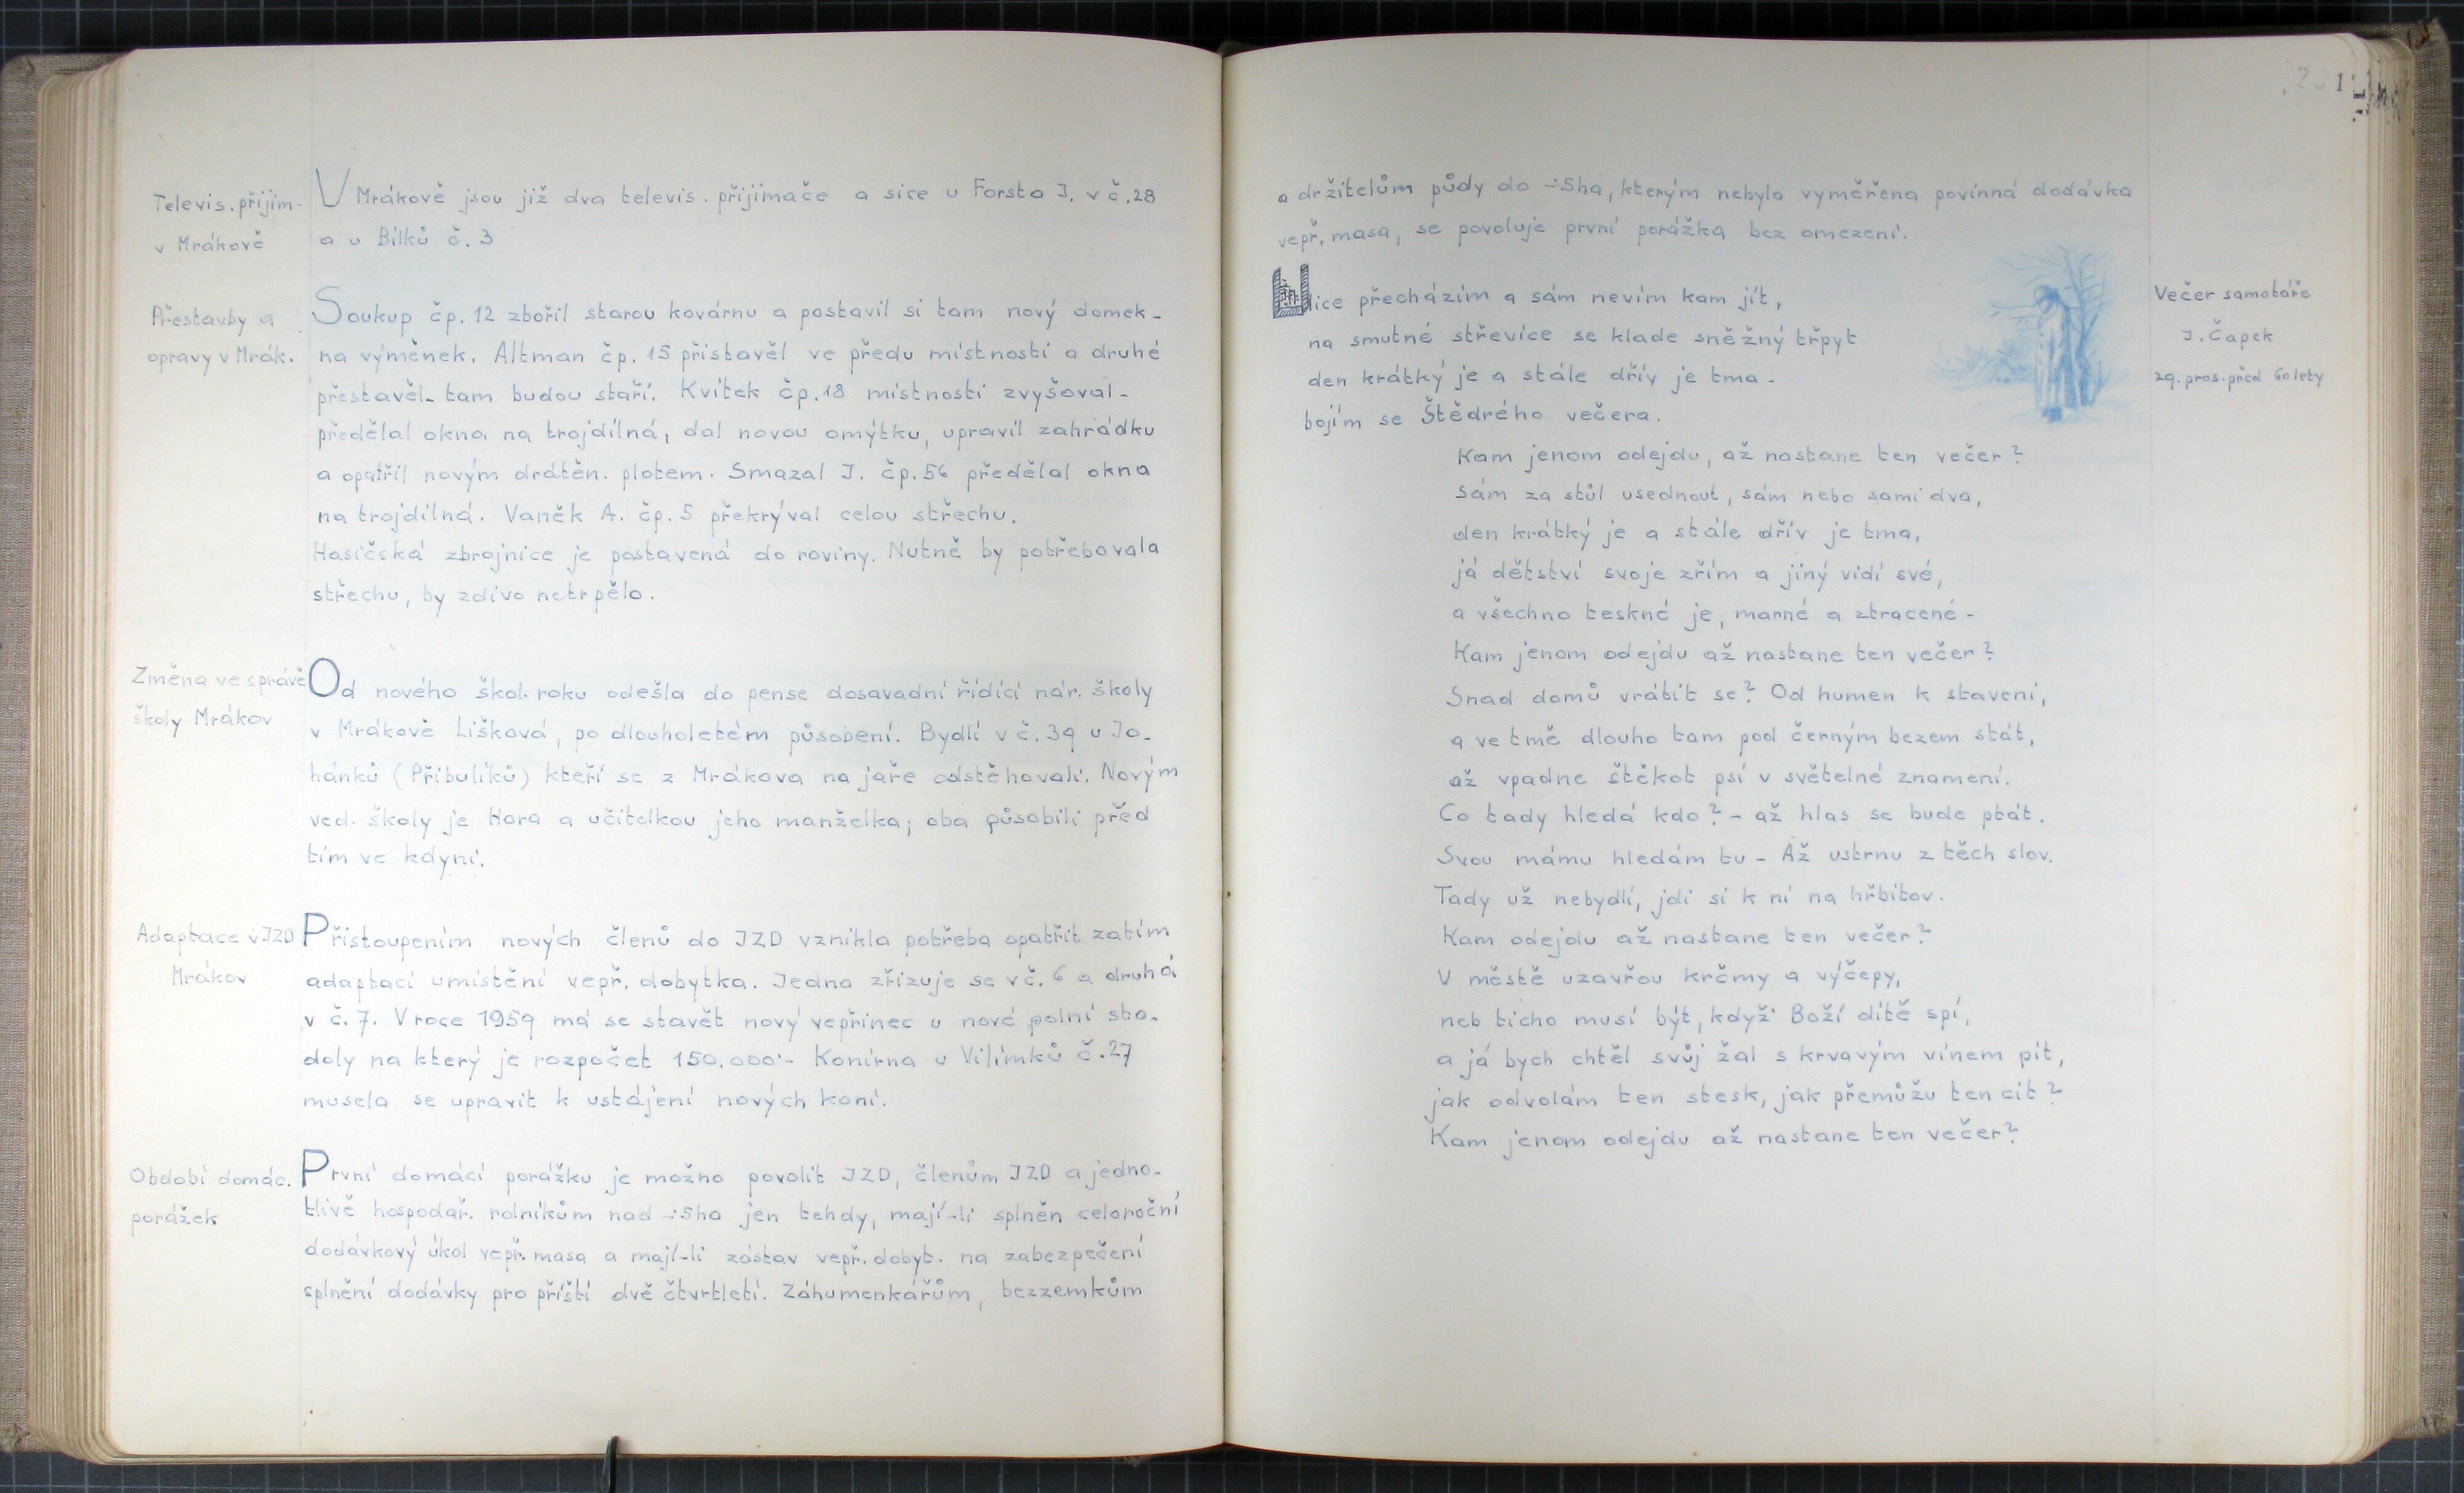 Televis. přijim.
v Mrákově
V Mrákově jsou již dva televis. přijimače a sice u Forsta J. v č. 28
a u Bílků č. 3
Přestavby a
opravy v Mrák.
Soukup čp. 12 zbořil starou kovárnu a postavil si tam nový domek-
na výměnek. Altman čp. 15 přistavěl ve předu místnosti a druhé
přestavěl- tam budou staří. Kvítek čp. 18 místnosti zvyšoval-
předělal okna na trojdílná, dal novou omýtku, upravil zahrádku
a opatřil novým drátěn. plotem. Smazal J. čp. 56 předělal okna
na trojdílná. Vaněk A. čp. 5 překrýval celou střechu.
Hasičská zbrojnice je postavená do roviny. Nutně by potřebovala
střechu, by zdivo netrpělo.
Změna ve správě
školy Mrákov
Od nového škol. roku odešla do pense dosavadní řídící nár. školy
v Mrákově Lišková, po dlouholetém působení. Bydlí v č. 39 u Jo-
hánků (Přibulíků) kteří se z Mrákova na jaře odstěhovali. Novým
ved. školy je Hora a učitelkou jeho manželka; oba působili před
tím ve kdyni.
Adaptace v JZD
Mrákov
Přistoupením nových členů do JZD vznikla potřeba opatřit zatím
adaptací umístění vepř. dobytka. Jedna zřizuje se v č. 6 a druhá
v č. 7. V roce 1959 má se stavět nový vepřinec u nové polní sto-
doly na který je rozpočet 150.000·- Konírna u Vilímků č. 27
musela se upravit k ustájení nových koní.
Období domác.
porážek
První domácí porážku je možno povolit JZD, členům JZD a jedno-
tlivě hospodař. rolníkům nad -·5ha jen tehdy, mají-li splněn celoroční
dodávkový úkol vepř. masa a mají-li zástav vepř. dobyt. na zabezpečení
splnění dodávky pro příští dvě čtvrtletí. Záhumenkářům, bezzemkům
a držitelům půdy do -·5ha, kterým nebyla vyměřena povinná dodávka
vepř. masa, se povoluje první porážka bez omezení.
Ulice přecházím a sám nevím kam jít,
na smutné střevíce se klade sněžný třpyt
den krátký je a stále dřív je tma-
bojím se Štědrého večera.
Večer samotáře
J. Čapek
29. pros. před 60 lety
Kam jenom odejdu, až nastane ten večer?
Sám za stůl usednout, sám nebo sami dva,
den krátký je a stále dřív je tma,
já dětství svoje zřím a jiný vidí své,
a všechno teskné je, marné a ztracené-
Kam jenom odejdu až nastane ten večer?
Snad domů vrátit se? Od humen k stavení,
a ve tmě dlouho tam pod černým bezem stát,
až vpadne štěkot psí v světelné znamení.
Co tady hledá kdo? - až hlas se bude ptát.
Svou mámu hledám tu - Až ustrnu z těch slov.
Tady už nebydlí, jdi si k ní na hřbitov.
Kam odejdu až nastane ten večer?
V městě uzavřou krčmy a výčepy,
neb ticho musí být, když Boží dítě spí,
a já bych chtěl svůj žal s krvavým vínem pít,
jak odvolám ten stesk, jak přemůžu ten cit?
Kam jenom odejdu až nastane ten večer?